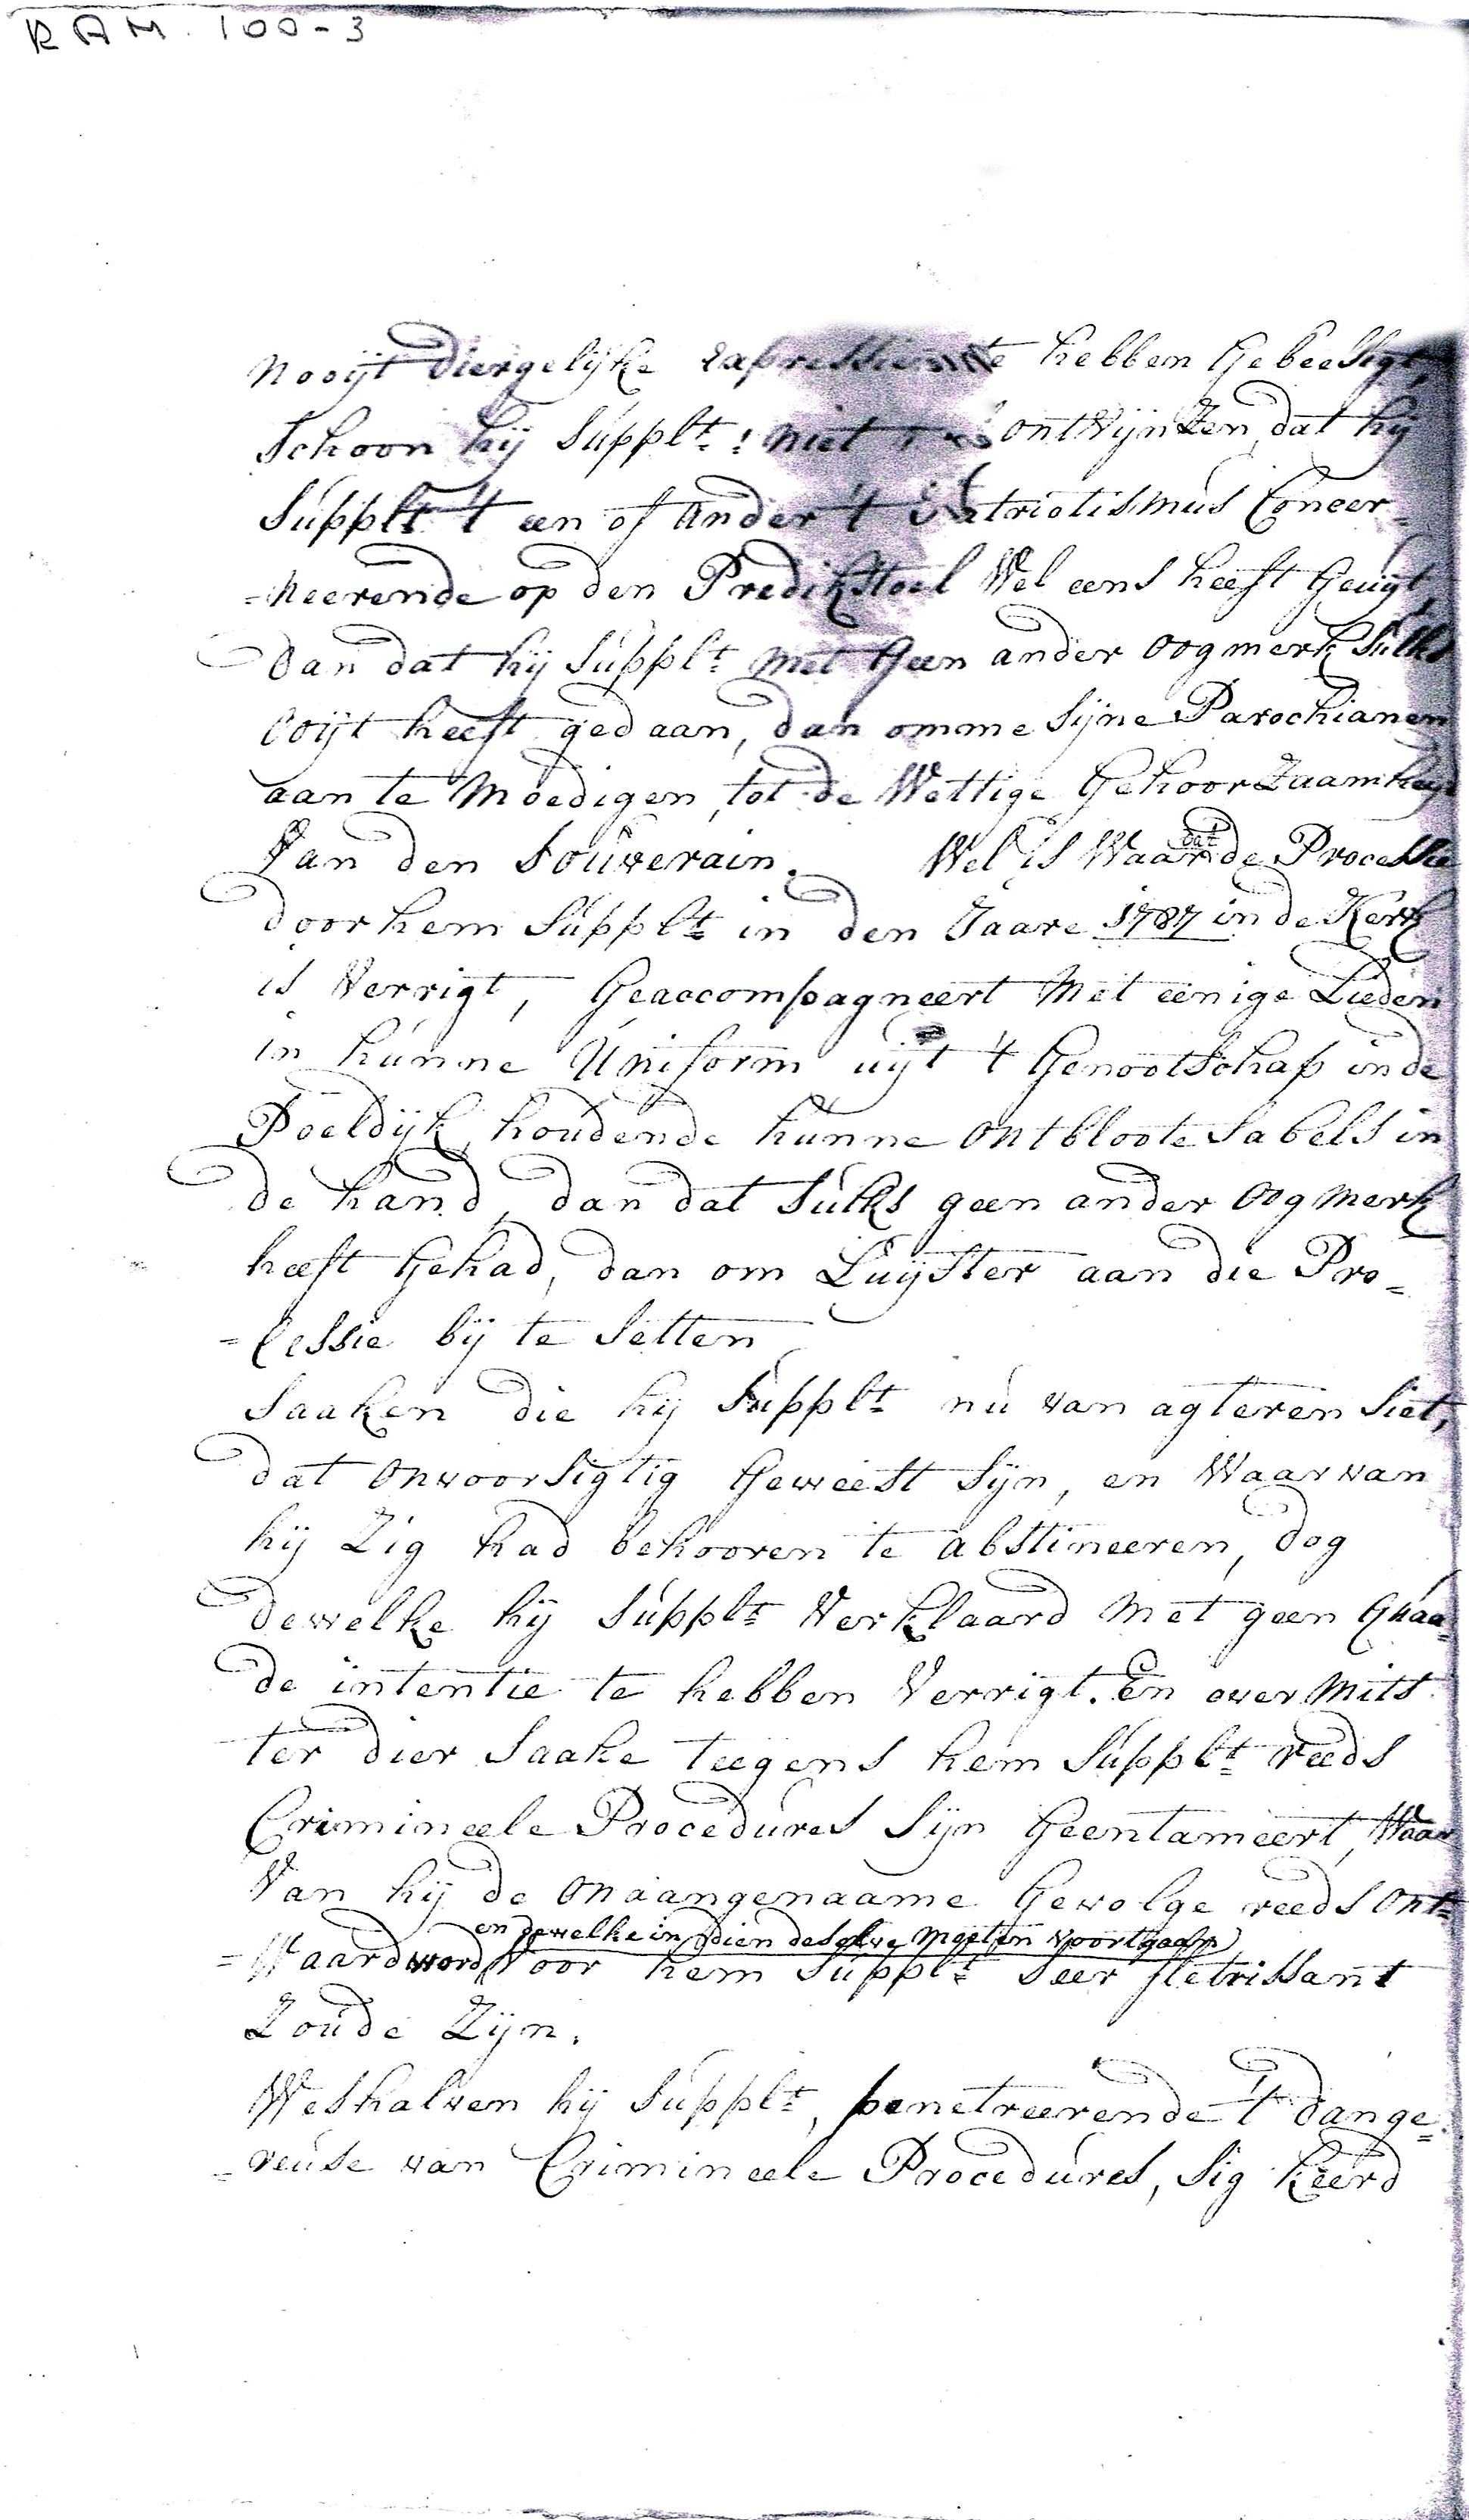 RAM. 100-3
nooijt diergelijke expressien te hebben Gebeesigt,
Schoon hij Supplt: niet ontwijnzen, dat hij
Supplt 't een of ander 't Patriotismus Concer=
=neerende op den Predikstoel Wel eens heeft Geuijt,
dan dat hij Supplt met Geen ander oogmerk Sulks
ooijt heeft gedaan, dan omme Sijne Parochianen
aan te Moedigen, tot de Wettige Gehoorzaamheijd
Van den Souverain. Wel is Waar dat de Processie
door hem Supplt in den Jaare 1787 in de Kerk
is Verrigt, Geaccompagneert Met eenige Lieden
in hunne Uniform uijt 't Genootschap in de
Poeldijk, houdende hunne ontbloote Sabels in
de hand, dan dat Sulks geen ander oogmerk
heeft Gehad, dan om Luijster aan die Pro=
=cessie bij te Setten
Saaken die hij Supplt nu van agteren Siet,
dat onvoorsigtig Geweest Sijn, en Waarvan
hij Zig had behooren te abstineeren, dog
dewelke hij Supplt Verklaard Met geen Quaa=
de intentie te hebben Verrigt. En over Mits
ter dier Saake teegens hem Supplt reeds
Crimineele Procedures Sijn Geentameert, Waar
Van hij de onaangenaame Gevolge reeds ont=
en dewelke indien deselve Mogten voortgaan
=Waard word Voor hem Supplt Seer fletrissant
Zoude Zijn.
Weshalven hij Supplt, penetreerende 't dange=
=reuse van Crimineele Procedures, Sig keerd